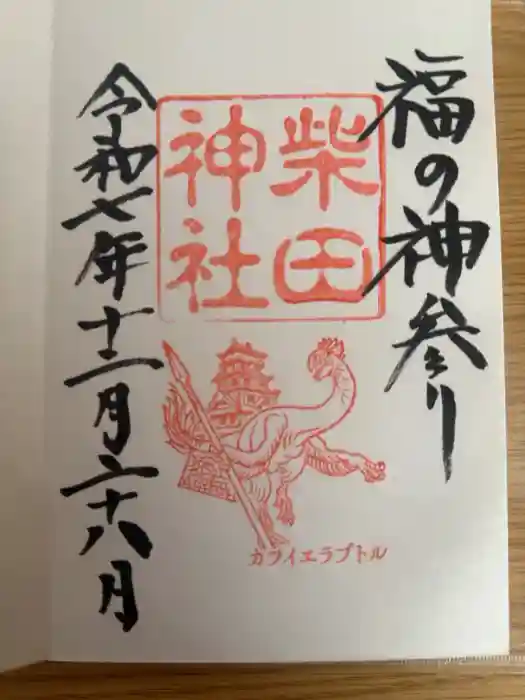 福の神参り
柴田
神社
カツイエラプトル
令和七年十二月二十八日